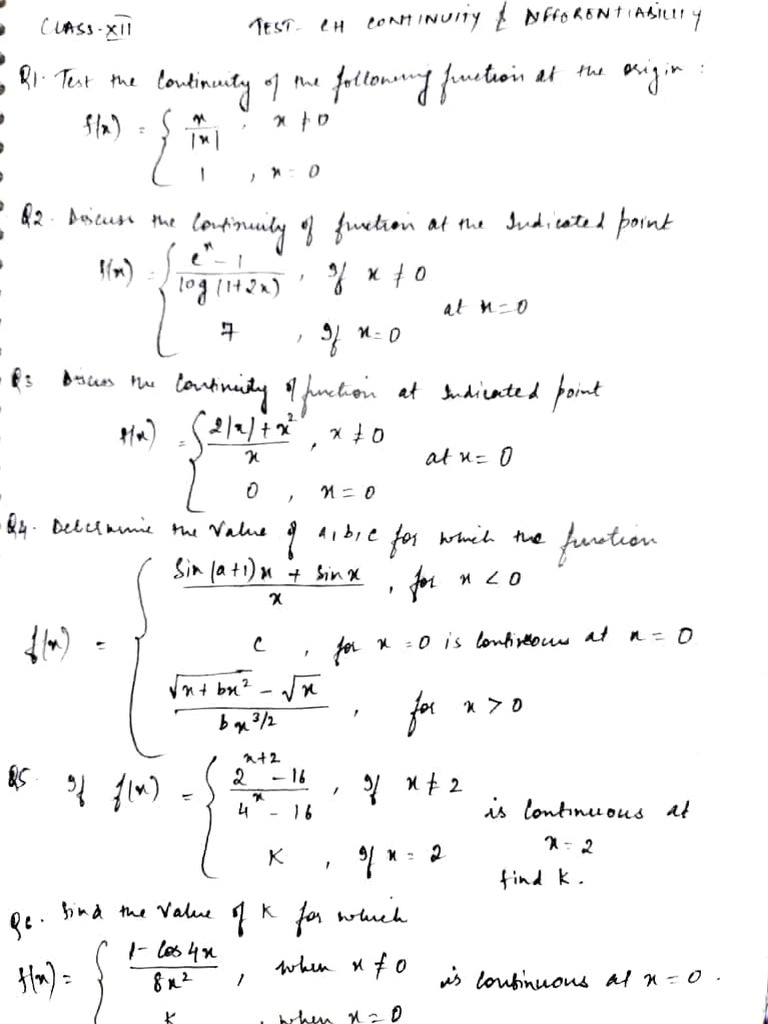 CLASS-XII TEST- CH CONTINUITY & DIFFORENTIABILITY
Q1. Test the Continuity of the following function at the origin :
f(x) = { x/|x| , x ≠ 0
1 , x = 0
Q2. Discuss the Continuity of function at the Indicated point
f(x) = { (e^x - 1)/log(1+2x) , If x ≠ 0
at x = 0
7 , If x = 0
Q3 Discuss the Continuity of function at Indicated point
f(x) = { (2|x| + x²)/x , x ≠ 0
at x = 0
0 , x = 0
Q4. Determine the Value of a, b, c for which the function
(Sin (a+1)x + Sin x)/x , for x < 0
f(x) = { c , for x = 0 is Continuous at x = 0
(√(x + bx²) - √x)/(b x^(3/2)) , for x > 0
Q5. If f(x) = { (2^(x+2) - 16)/(4^x - 16) , If x ≠ 2
is Continuous at x = 2
K , If x = 2
find k.
Q6. Find the Value of K for which
f(x) = { (1 - Cos 4x)/(8x²) , when x ≠ 0 is Continuous at x = 0 .
K , when x = 0